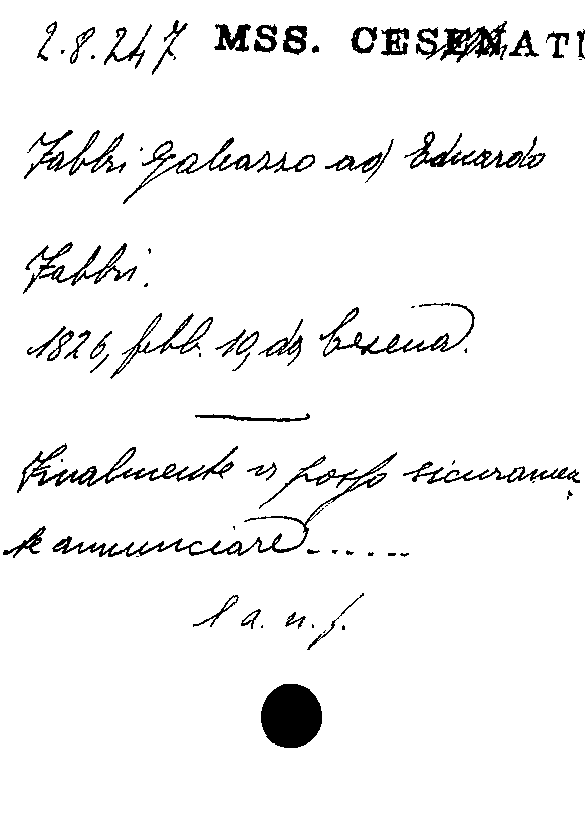 2.8.247 MSS. CESENATI
Fabbri Galeazzo ad Eduardo
Fabbri.
1826, febb. 19, da Cesena.
Finalmente vi posso sicuramen
te annunciare......
l a. n. f.